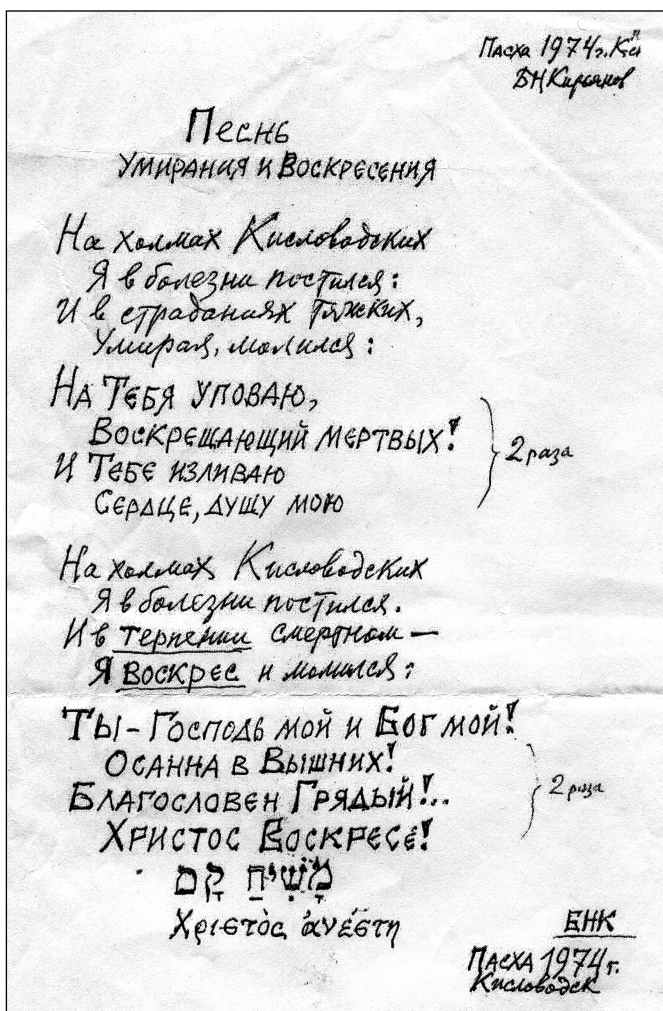 Пасха 1974 г. К-ск
БНКирьянов
Песнь
Умирания и Воскресения
На холмах Кисловодских
Я в болезни постился:
И в страданиях тяжских,
Умирая, молился:
На Тебя уповаю,
Воскрещающий мертвых!
2 раза
И Тебе изливаю
Сердце, душу мою
На холмах Кисловодских
Я в болезни постился.
И в терпении смертном —
Я воскрес и молился:
Ты – Господь мой и Бог мой!
Осанна в Вышних!
Благословен Грядый!..
2 раза
Христос Воскресе!
מָשִׁיחַ קָם
Χριστὸς ἀνέστη
БНК
Пасха 1974 г.
Кисловодск